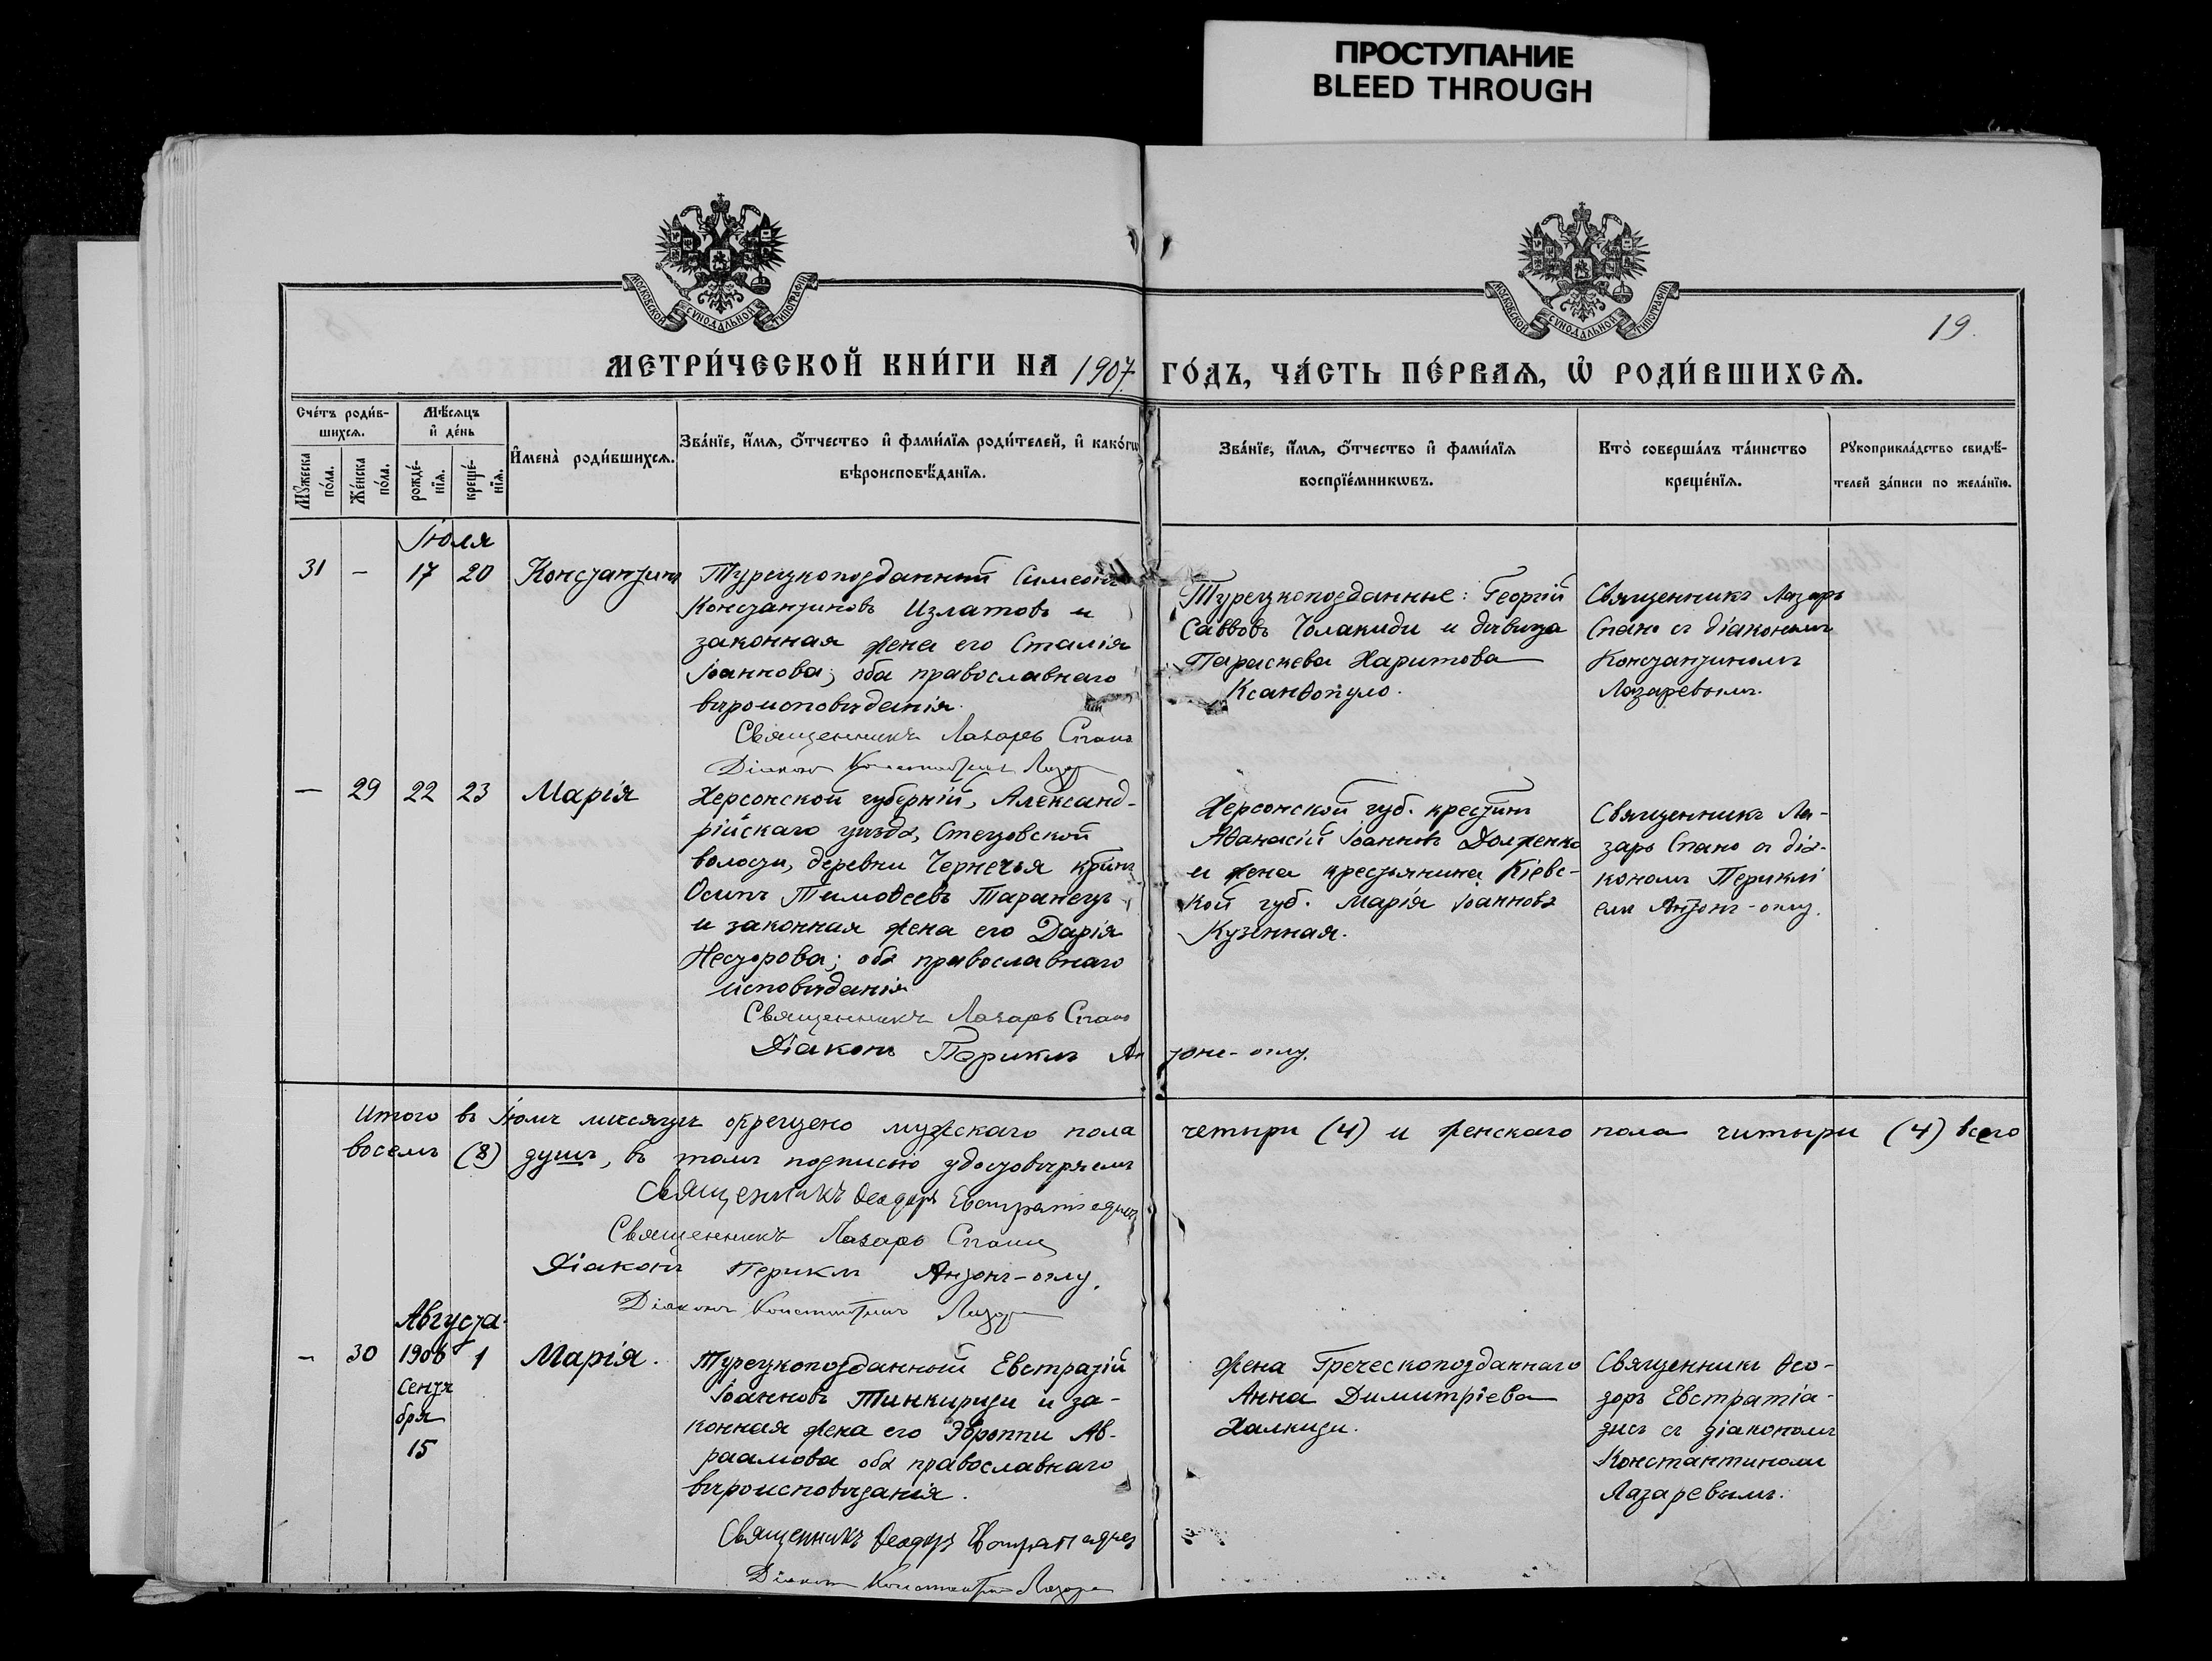 ПРОСТУПАНИЕ
BLEED THROUGH
МОСКОВСКОЙ СУНОДАЛЬНОЙ ТИПОГРАФІИ
МОСКОВСКОЙ СУНОДАЛЬНОЙ ТИПОГРАФІИ
19.
МЕТРИ́ЧЕСКОЙ КНИ́ГИ НА 1907 ГО́ДЪ, ЧА́СТЬ ПЕ́РВАѦ, Ѡ РОДИ́ВШИХСѦ.
Сче́тъ роди́в-
шихсѧ.
Мѣ́сѧцъ
и҆ де́нь
Мꙋ́жеска
по́ла.
Же́нска
по́ла.
рожде́-
нїѧ.
креще́-
нїѧ.
И҆мена̀ роди́вшихсѧ.
Зва́нїе, и҆́мѧ, ѻ҆́тчество и҆ фами́лїѧ роди́телей, и҆ како́гѡ
вѣроисповѣ́данїѧ.
Зва́нїе, и҆́мѧ, ѻ҆́тчество и҆ фами́лїѧ
воспрїе́мникѡвъ.
Кто̀ соверша́лъ та́инство
креще́нїѧ.
Рꙋкоприкла́дство свидѣ́-
телей за́писи по жела́нїю.
Іюля
31 — 17 20 Константинъ
Турецкоподданный Симеонъ
Константиновъ Излатовъ и
законная жена его Сталія
Іоаннова; оба православнаго
вѣроисповѣданія.
Священникъ Лазарь Спано
Діаконъ Константинъ Лазар
Турецкоподданные: Георгій
Саввовъ Чолакиди и дѣвица
Параскева Харитова
Ксанѳопуло.
Священникъ Лазарь
Спано съ діакономъ
Константиномъ
Лазаревымъ.
— 29 22 23 Марія
Херсонской губерніи, Александ-
рійскаго уѣзда, Стецовской
волости, деревни Чернечья кр-нинъ
Осипъ Тимоѳеевъ Таранецъ
и законная жена его Дарія
Несторова; оба православнаго
исповѣданія
Священникъ Лазарь Спано
Діаконъ Периклъ Антонъ-оглу.
Херсонской губ. крест-нинъ
Аѳанасій Іоанновъ Долженко
и жена крестьянина Кіевс-
кой губ. Марія Іоаннова
Кузенная.
Священникъ Ла-
зарь Спано съ діа-
кономъ Перикл
емъ Антонъ-оглу.
Итого въ Іюлѣ мѣсяцѣ окрещено мужскаго пола четыри (4) и женскаго пола читыри (4) всего
восемъ (8) душъ, въ томъ подписю удостовѣряемъ
Священникъ Ѳеодоръ Евстратіадисъ
Священникъ Лазарь Спано
Діаконъ Периклъ Антонъ-оглу.
Діаконъ Константинъ Лазар
Августа
— 30 1906 1 Марія.
Сентя
бря
15
Турецкоподданный Евстратій
Іоанновъ Тинкириди и за-
конная жена его Эвроппи Ав-
раамова оба православнаго
вѣроисповѣданія.
Священникъ Ѳеодоръ Евстратіадисъ
Діаконъ Константинъ Лазар
Жена Греческоподданнаго
Анна Димитріева
Халкиди.
Священникъ Ѳео-
доръ Евстратіа-
дисъ съ діакономъ
Константиномъ
Лазаревымъ.